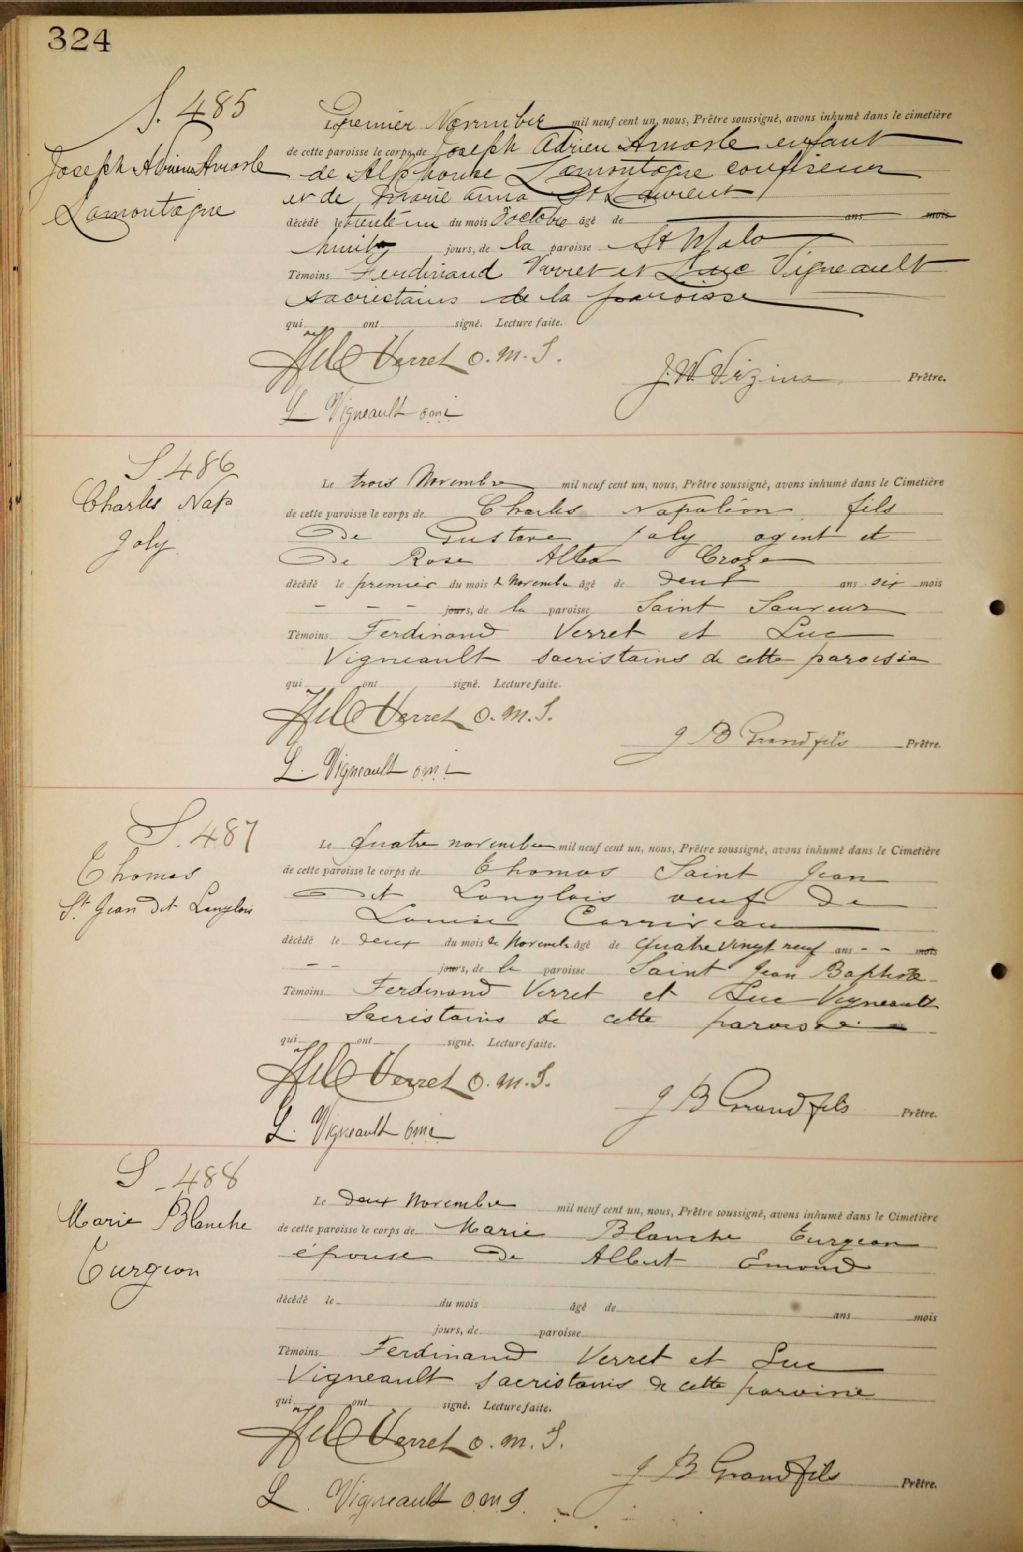 324
S. 485
Joseph Adrien Amosle
Lamontagne
Le Premier Novembre mil neuf cent un, nous, Prêtre soussigné, avons inhumé dans le cimetière
de cette paroisse le corps de Joseph Adrien Amosle enfant
de Alphonse Lamontagne confiseur
et de Marie Anna St Laurent
décédé le trente un du mois d'octobre âgé de ans mois
huit jours, de la paroisse St Malo
Témoins Ferdinand Verret et Luc Vigneault
sacristains de la paroisse
qui ont signé. Lecture faite.
Verret O.M.I.
J. W. Vézina Prêtre.
L. Vigneault omi
S. 486
Charles Nap
Joly
Le trois Novembre mil neuf cent un, nous, Prêtre soussigné, avons inhumé dans le Cimetière
de cette paroisse le corps de Charles Napoléon fils
De Gustave Joly agent et
De Rose Alba
décédé le premier du mois de Novembre âgé de deux ans six mois
- - - jours, de la paroisse Saint Sauveur
Témoins Ferdinand Verret et Luc
Vigneault sacristains de cette paroisse
qui ont signé. Lecture faite.
Verret O.M.I.
J B Grandfils Prêtre.
L. Vigneault omi
S. 487
Thomas
St Jean dit Langlois
Le quatre novembre mil neuf cent un, nous, Prêtre soussigné, avons inhumé dans le Cimetière
de cette paroisse le corps de Thomas Saint Jean
Dit Langlois veuf De
Louise Corriveau
décédé le deux du mois de Novembre âgé de quatre vingt neuf ans - - mois
- - jours, de la paroisse Saint Jean Baptiste
Témoins Ferdinand Verret et Luc Vigneault
Sacristains de cette paroisse
qui n ont signé. Lecture faite.
Verret O.M.I.
J B Grandfils Prêtre.
L. Vigneault omi
S - 488
Marie Blanche
Turgeon
Le deux Novembre mil neuf cent un, nous, Prêtre soussigné, avons inhumé dans le Cimetière
de cette paroisse le corps de Marie Blanche Turgeon
épouse De Albert Emond
décédé le du mois âgé de ans mois
jours, de paroisse
Témoins Ferdinand Verret et Luc
Vigneault sacristains de cette paroisse
qui ont signé. Lecture faite.
Verret O.M.I.
J B Grandfils Prêtre.
L. Vigneault O.M.I.